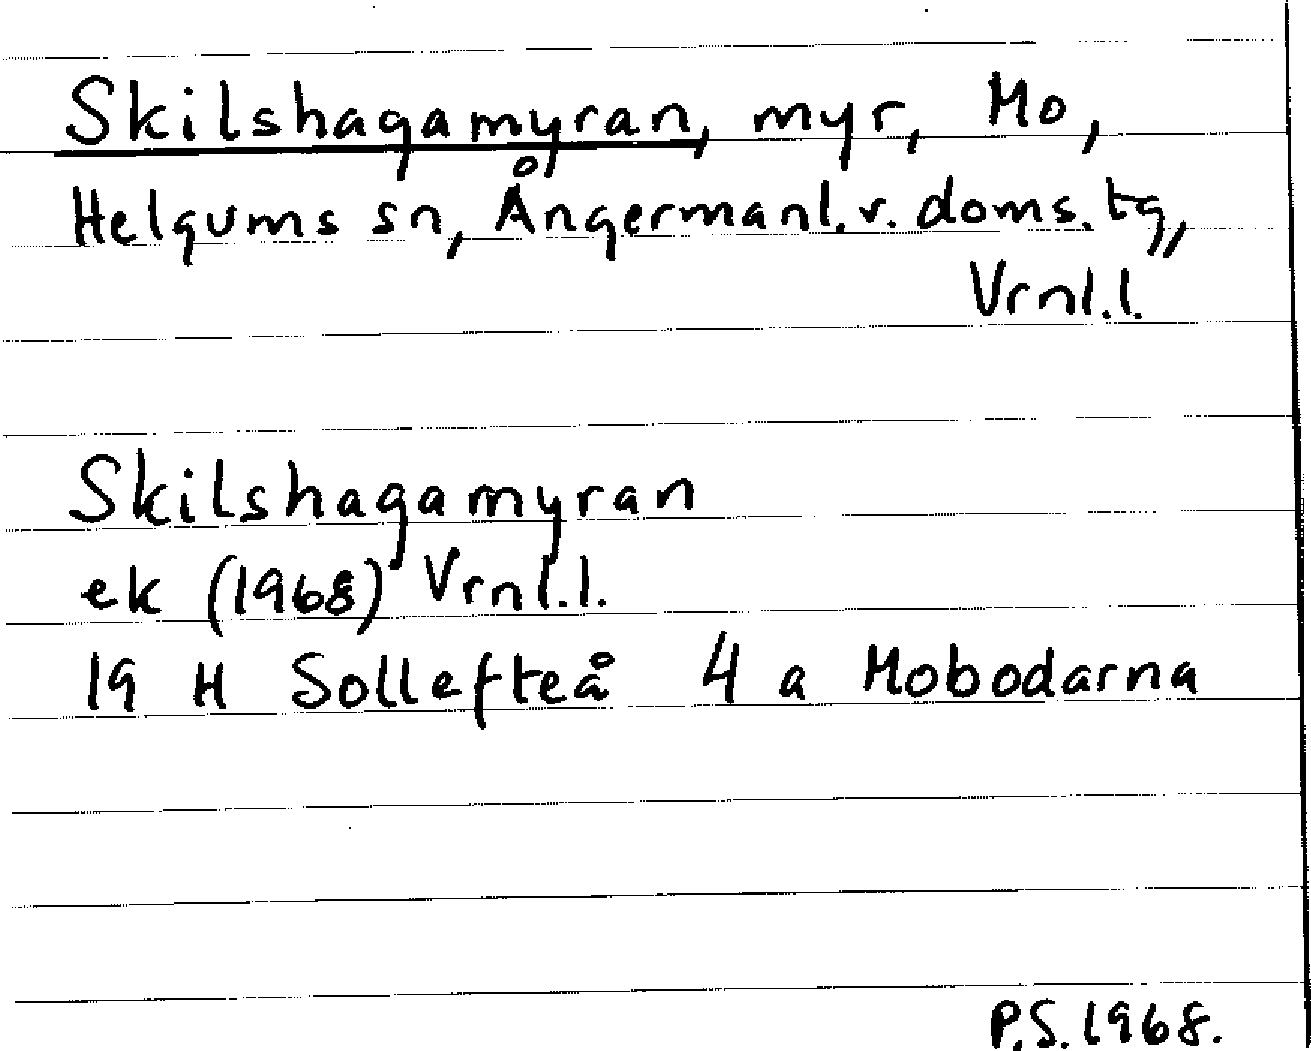 Skilshagamyran, myr, Mo,
Helgums sn, Ångermanl. v. doms. tg,
Vrnl.l.
Skilshagamyran
ek (1968) Vrnl.l.
19 H Sollefteå 4 a Mobodarna
P.S. 1968.